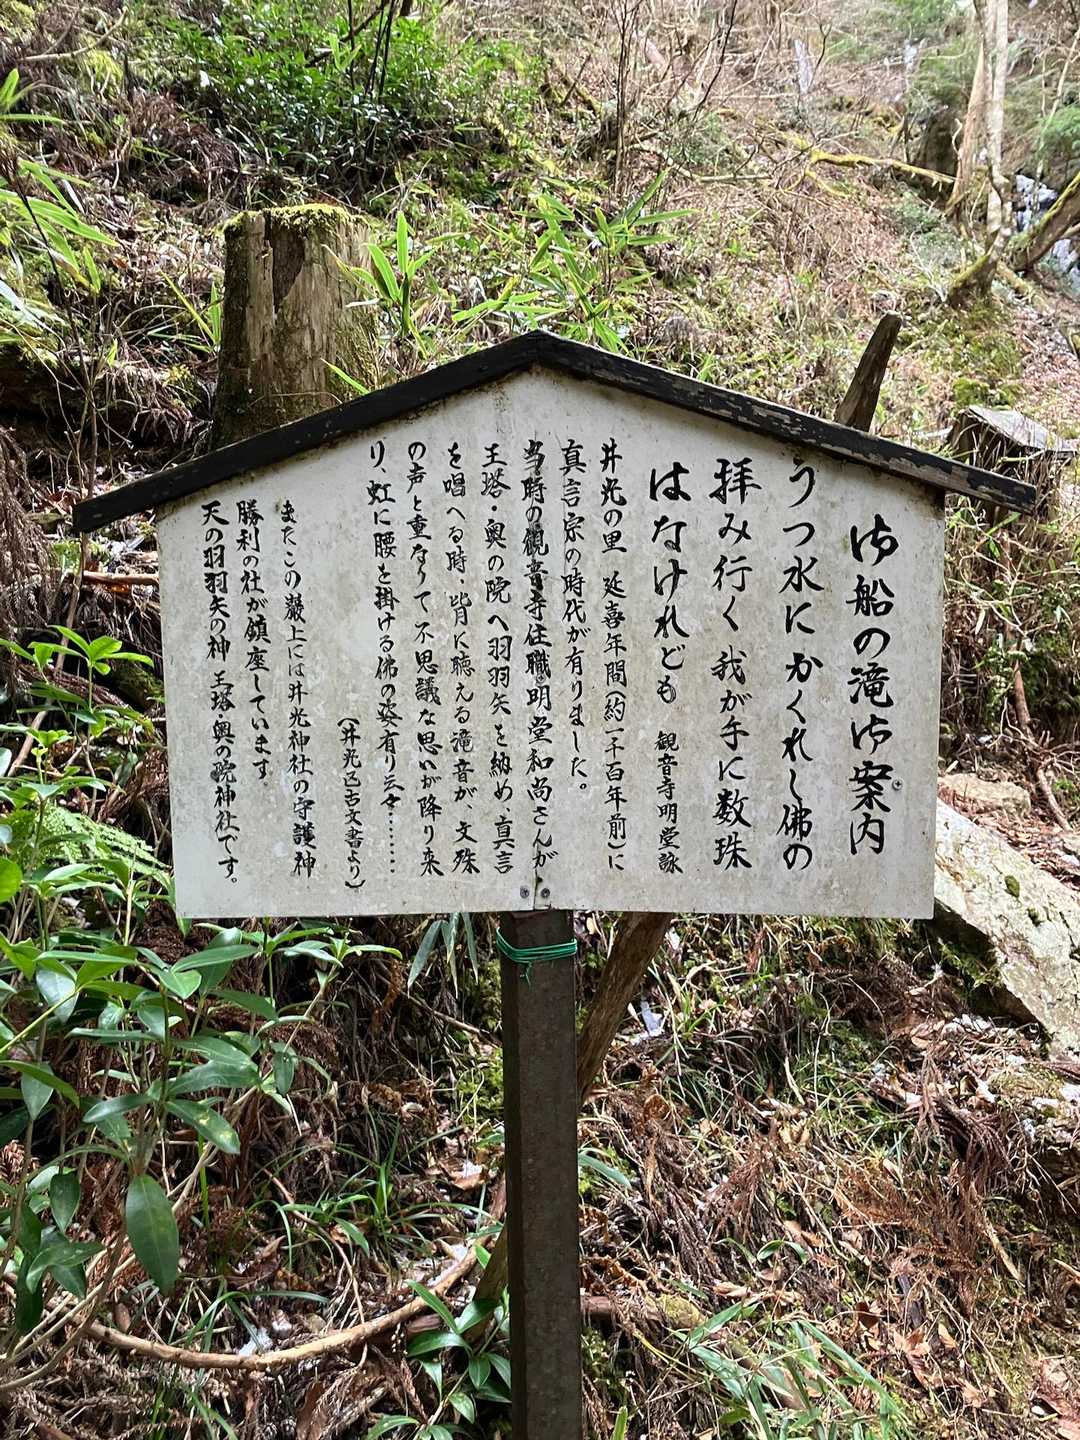 御船の滝御案内
うつ水にかくれし佛の
拝み行く我が手に数珠
はなけれども 観音寺明堂詠
井光の里 延喜年間(約一千百年前)に
真言宗の時代が有りました。
当時の観音寺住職明堂和尚さんが
王塔・奥の院へ羽羽矢を納め、真言
を唱へる時、皆に聴える滝音が、文殊
の声と重なりて不思議な思いが降り来
り、虹に腰を掛ける佛の姿有り云々………
(井光区古文書より)
またこの巌上には井光神社の守護神
勝利の社が鎮座しています。
天の羽羽矢の神 王塔・奥の院神社です。